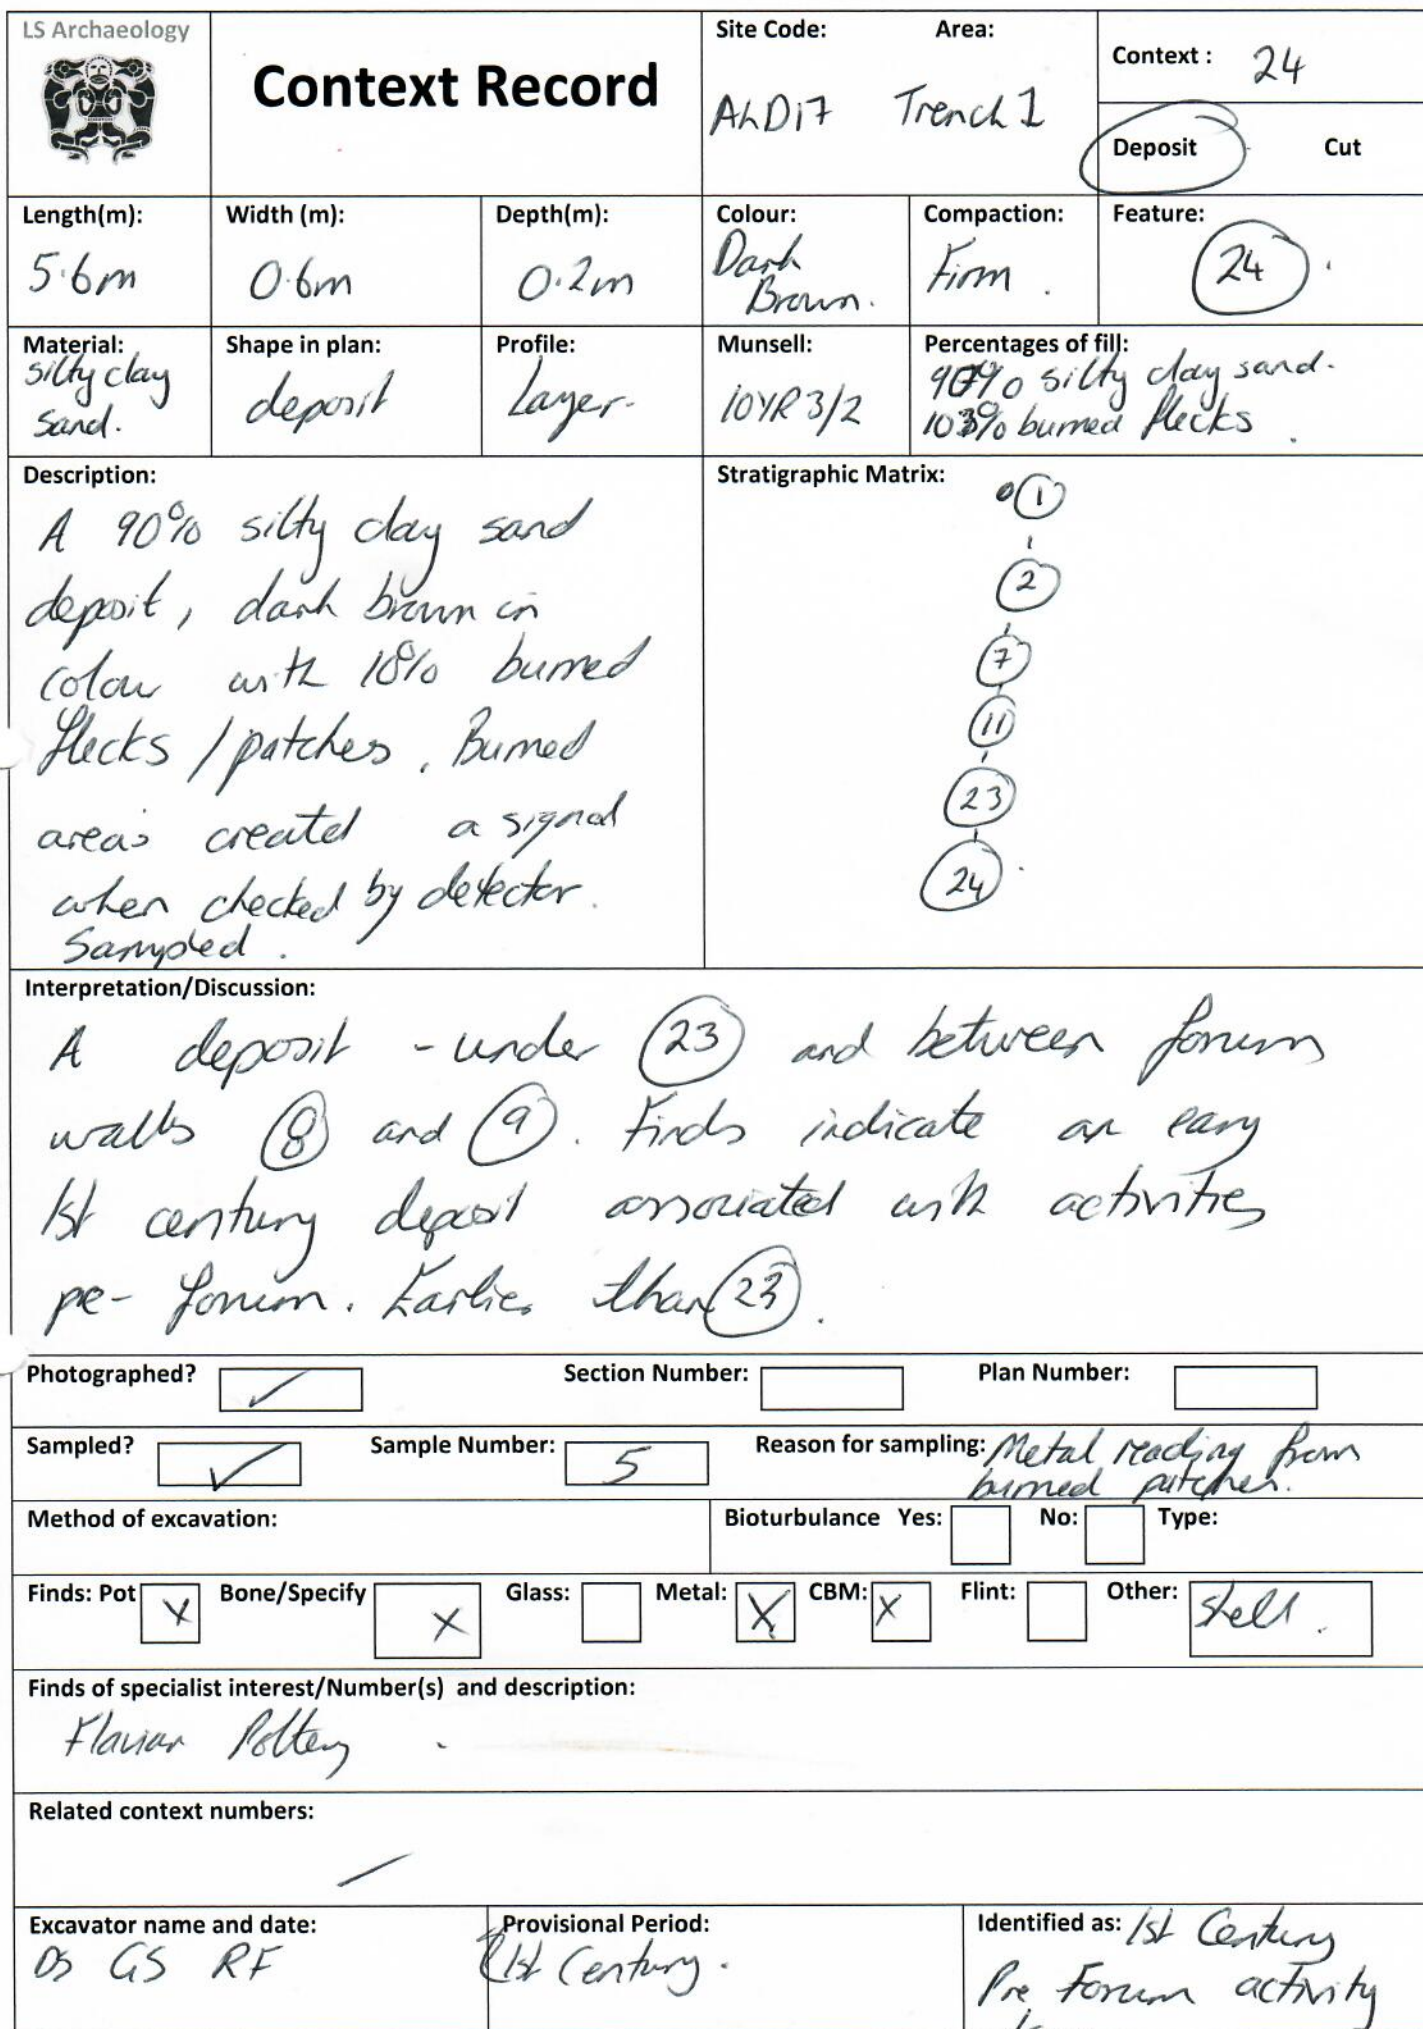 LS Archaeology
Context Record
Site Code: Area:
ALD17 Trench 1
Context : 24
Deposit Cut
Length(m): Width (m): Depth(m): Colour: Compaction: Feature:
5.6m 0.6m 0.2m Dark Brown. Firm. 24
Material: Shape in plan: Profile: Munsell: Percentages of fill:
silty clay deposit Layer. 10YR 3/2 90% silty clay sand.
sand. 10% burned flecks.
Description:
A 90% silty clay sand
deposit, dark brown in
colour with 10% burned
flecks / patches. Burned
areas created a signal
when checked by detector.
Sampled.
Stratigraphic Matrix:
1
2
7
11
23
24
Interpretation/Discussion:
A deposit - under 23 and between forum
walls 8 and 9. Finds indicate an eary
1st century deposit associated with activities
pe- forum. Earlier than 23.
Photographed? ✓ Section Number: Plan Number:
Sampled? ✓ Sample Number: 5 Reason for sampling: Metal reading from
burned patches.
Method of excavation: Bioturbulance Yes: No: Type:
Finds: Pot X Bone/Specify X Glass: Metal: X CBM: X Flint: Other: Shell.
Finds of specialist interest/Number(s) and description:
Flavian Pottery.
Related context numbers:
Excavator name and date: Provisional Period: Identified as: 1st Century
DS GS RF 1st Century. Pre Forum activity